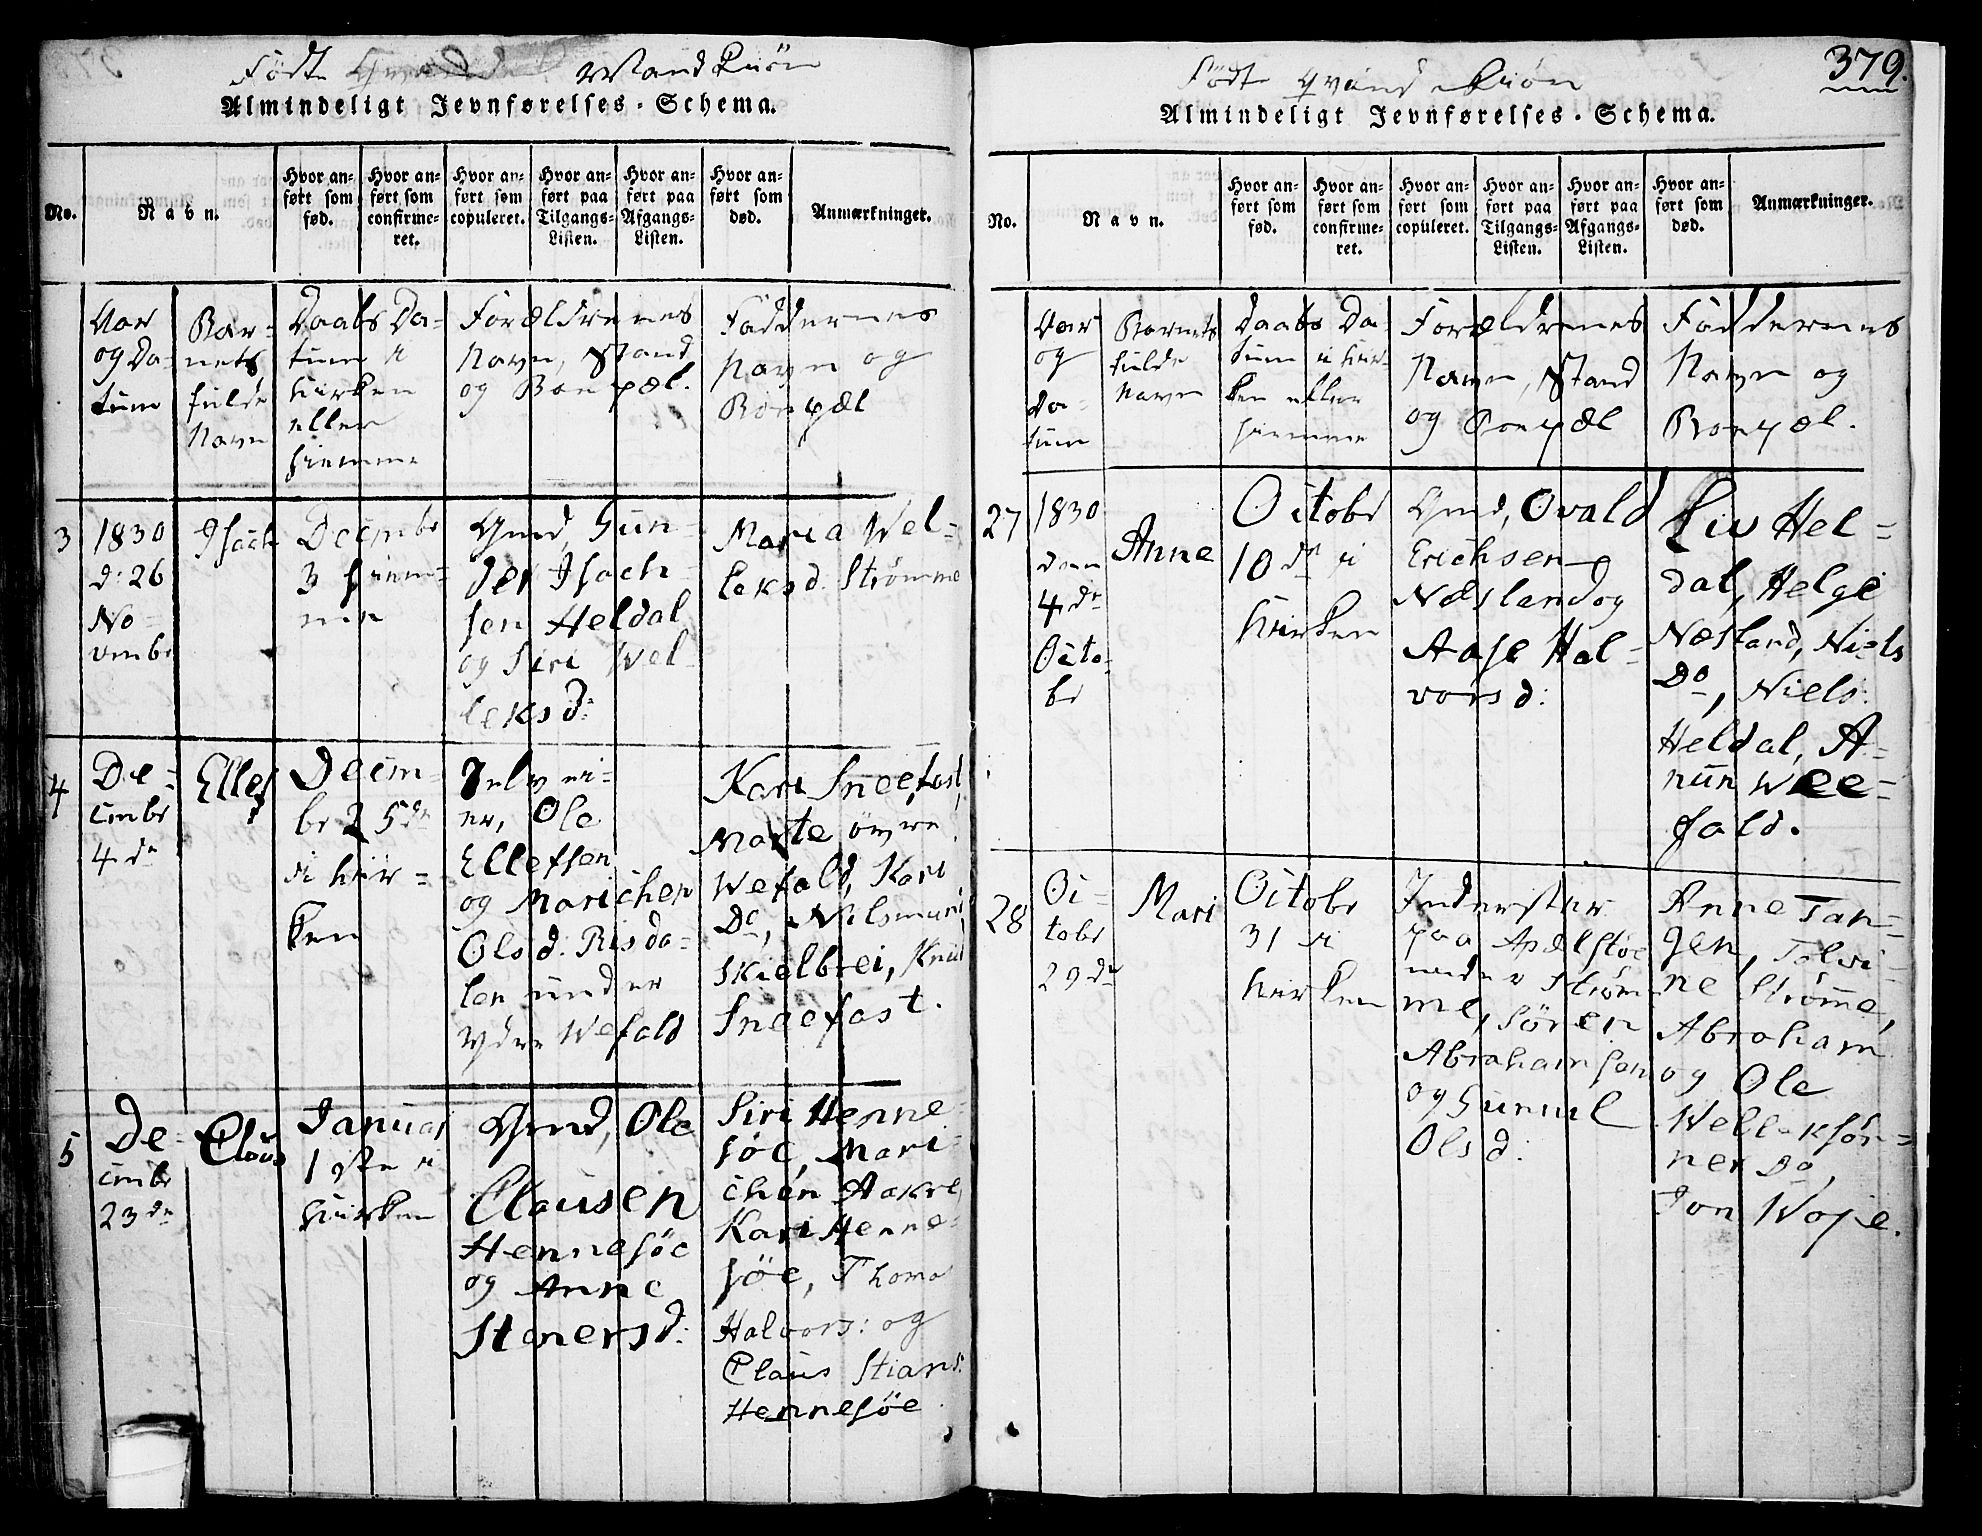 Født Mandkiøn
Almindeligt Jevnførelses-Schema.
No.
Navn.
Hvor an-
ført som
fød.
Hvor an-
ført som
confirme-
ret.
Hvor an-
ført som
copuleret.
Hvor an-
ført paa
Tilgangs-
Listen.
Hvor an-
ført paa
Afgangs-
Listen.
Hvor an-
ført som
død.
Anmærkninger.
Aar
og Da-
tum
Bar-
nets
fulde
Navn
Daabs Da-
tum i
Kirken
eller
hiemme
Forældrenes
Navn, Stand
og Boepæl.
Faddernes
Navn og
Boepæl
3
1830
d: 26
No-
vembr
Isach
Decmbr
3 hiem-
me
Gmd, Gun-
der Isach-
sen Heldal
og Siri Wel-
leksd:
Maria Wel-
leksd: Strømme
4
De-
cmbr
4 de
Ellef
Decm-
br 25 de
i Kir-
ken
Selvei-
er, Ole
Ellefsen
og Marichen
Olsd: Risda-
len under
Ydre Wefald
Kari Sneefast,
Marte øvre
Wefald, Kari
Do, Nilsmuni
Skielbrei, Knud
Sneefast.
5
De-
cmbr
23 de
Claus
Januar
1ste i
Kirken
Gmd, Ole
Clausen
Hennesøe
og Anne
Stenersd:
Siri Henne-
søe, Mari-
chen Aakre,
Kari Henne-
søe, Thomas
Halvors: og
Claus Stians:
Hennesøe
379.
Født Qvindekiøn
Almindeligt Jevnførelses-Schema.
No.
Navn.
Hvor an-
ført som
fød.
Hvor an-
ført som
confirme-
ret.
Hvor an-
ført som
copuleret.
Hvor an-
ført paa
Tilgangs-
Listen.
Hvor an-
ført paa
Afgangs-
Listen.
Hvor an-
ført som
død.
Anmærkninger.
Aar
og
Da-
tum
Barnets
fulde
Navn
Daabs Da-
tum i Kir-
ken eller
hiemme
Forældrenes
Navn, Stand
og Boepæl
Faddernes
Navn og
Boepæl.
27
1830
den
4 de
Octo-
br
Anne
Octobr
10 de i
Kirken
Gmd, Ovald
Erichsen
Næsland og
Aase Hal-
vorsd:
Liv Hel-
dal, Helge
Næsland, Niels
Do, Niels
Heldal, A-
nun Wee-
fald.
28
Oc-
tobr
29 de
Mari
Octobr
31 i
Kirken
Inderster
paa Apelstøe
under Strøm-
me, Søren
Abrahamsen
og Gunnil
Olsd:
Anne Tan-
gen, Tolvi-
ne Strømme,
Abraham
og Ole
Welleksøn-
ner Do,
Jon Woje.